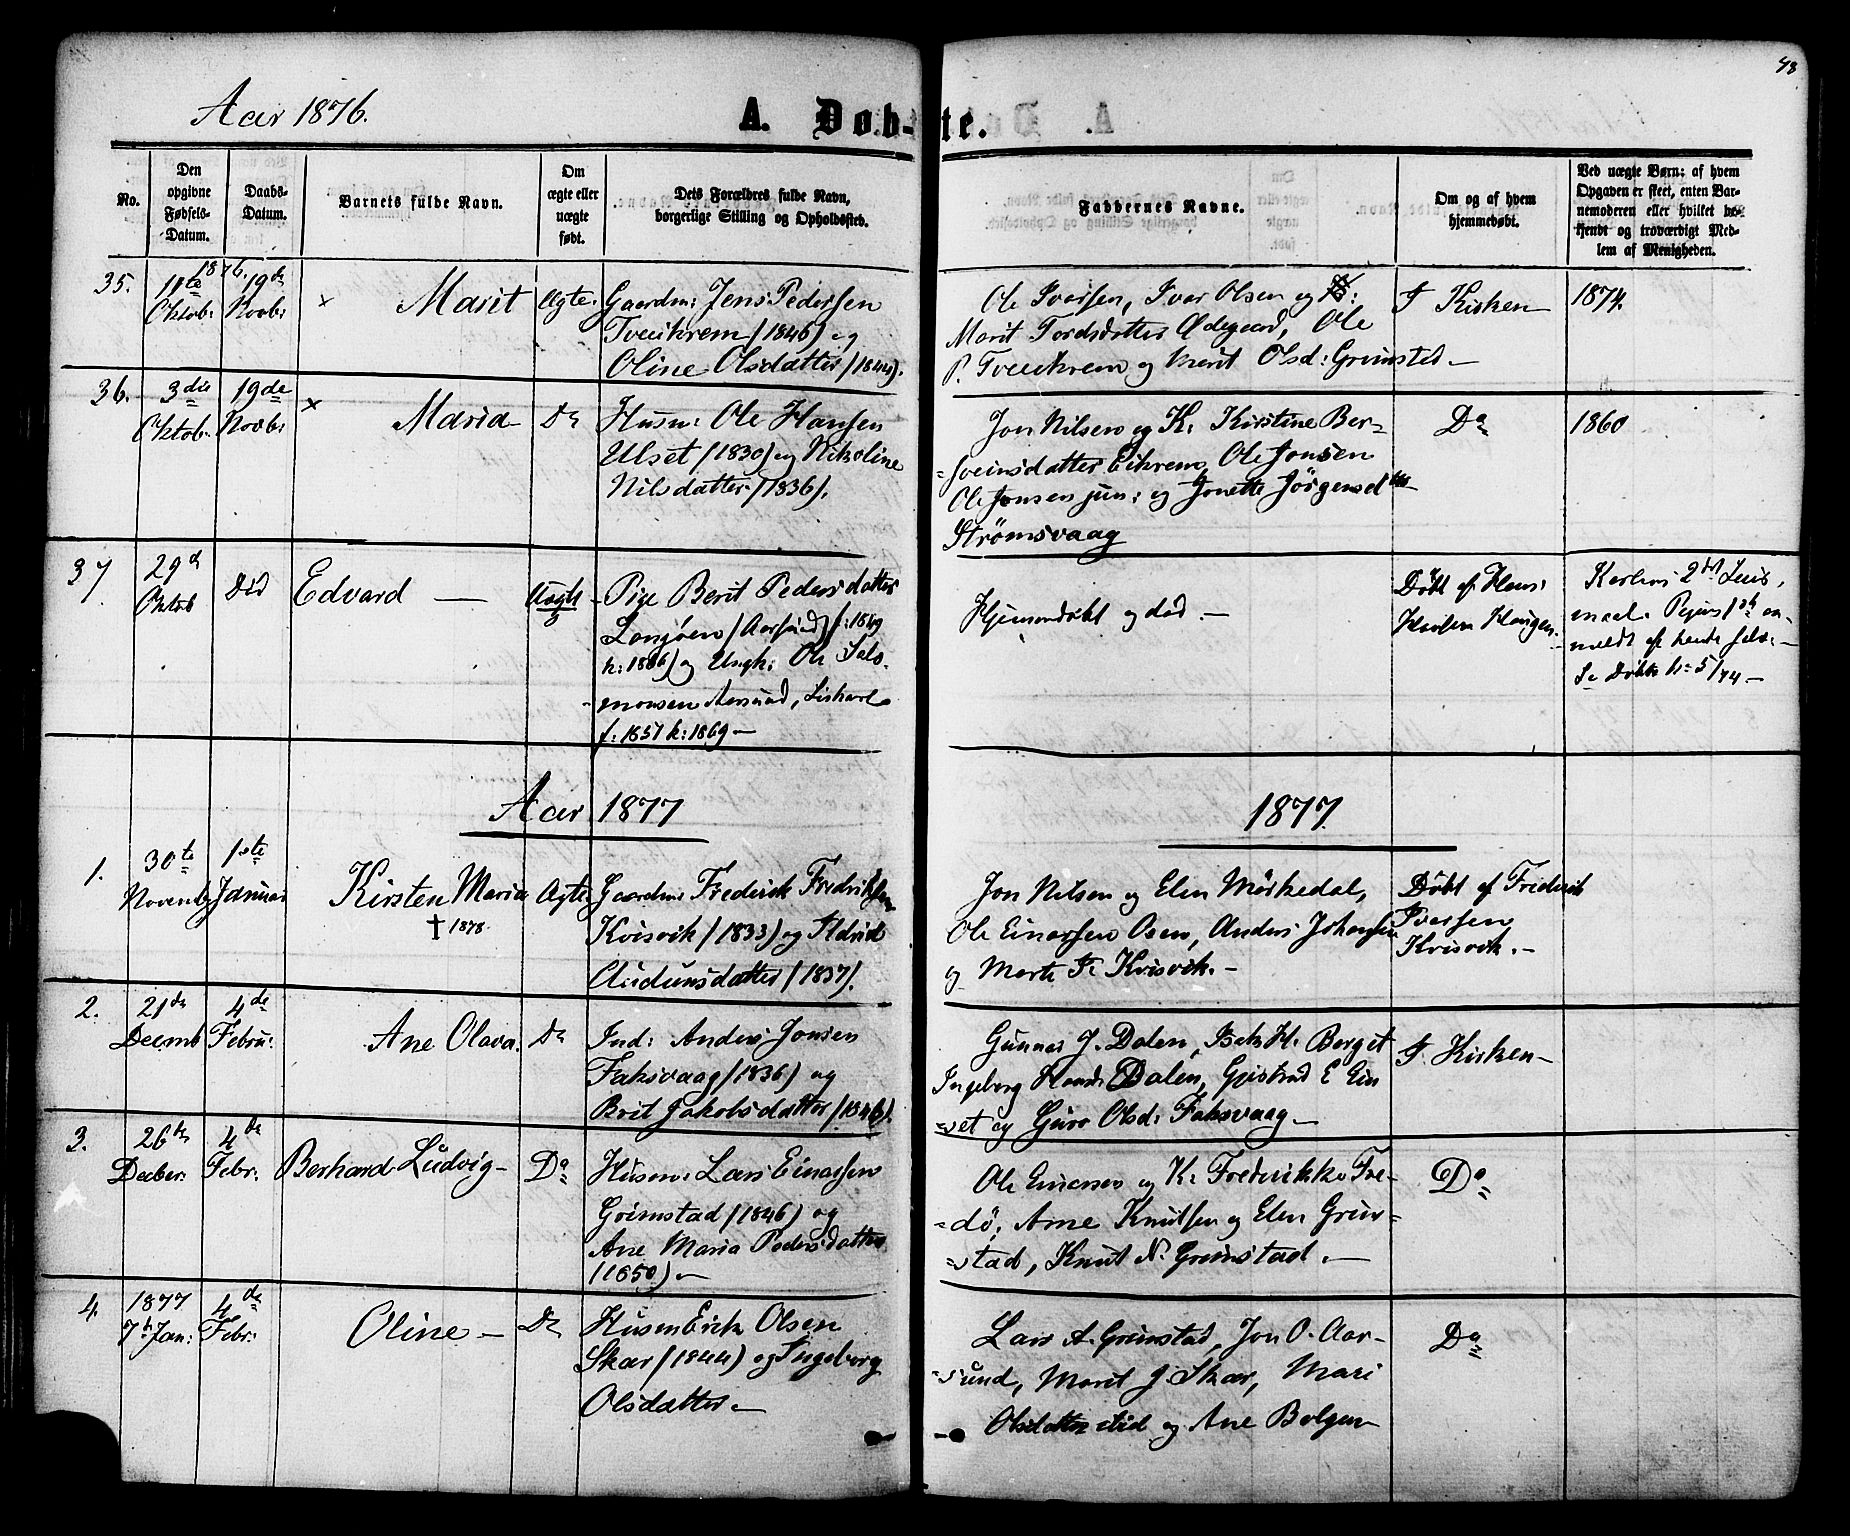 Aar 1876.
A. Døb-
te.
No.
Den opgivne Fødsels-Datum.
Daabs-Datum.
Barnets fulde Navn.
Om ægte eller uægte født.
Dets Forældres fulde Navn, borgerlige Stilling og Opholdssted.
Faddernes Navne.
Om og af hvem hjemmedøbt.
Ved uægte Børn; af hvem Opgaven er skeet, enten Barnemoderen eller hvilket bekjendt og troværdigt Medlem af Menigheden.
35.
1876.
11te Oktob:
19de Novb:
× Marit
Ægte.
Gaardm: Jens Pedersen
Tveikrem (1846) og
Oline Olsdatter (1844).
Ole Ivarsen, Ivar Olsen og
Marit Tordsdatter Ødegaard, Ole
P. Tveikrem og Marit Olsd: Grimstad –
I Kirken
1874.
36.
3die Oktob:
19de Novb:
× Maria
Do
Husm: Ole Hansen
Ulset (1830) og Nikoline
Nilsdatter (1836).
Jon Nilsen og K. Kirstine Ber-
-sveinsdatter Eikrem, Ole Jonsen
Ole Jonsen jun: og Jonette Jørgensdtr
Strømsvaag
Do
1860
37
29de Oktob
Did
Edvard –
Uægte
Pige Berit Pedersdatter
Longøen (Aarsund) f: 1849
k: 1866) og Ungk: Ole Sals-
monsen Aarsund,
f: 1851 k: 1869 –
Hjemmedøbt og død –
Døbt af
Haugen
2det
maal. Pigens
meldt af hende selv. –
Se Døbte No 5/74 –
Aar 1877
1877.
1.
30te Novemb
1ste Januar
Kirsten Maria
† 1878.
Ægte
Gaardm: Frederik Fredriksen
Kvisvik (1833) og
Audunsdatter (1837).
Jon Nilsen og Elen Mørkedal,
Ole Einarsen Osen, Anders Johansen
og Marte F. Kvisvik. –
Døbt af Frederik
Ivarsen
Kvisvik. –
2.
21de Decemb
4de Febru:
Ane Olava.
Do
Ind: Anders Jonsen
Faksvaag (1836) og
Brit Jakobsdatter (1846).
Gunnar J. Dalen, H. Berget
Ingeborg Dalen, E Ein
-set og Guro Olsd: Faksvaag –
I Kirken –
3.
26de Decber.
4de Febr.
Berhard Ludvig –
Do
Husm: Lars Einarsen
Grimstad (1846) og
Ane Maria Pedersdatter
(1850) –
Ole Einarsen og K. Frederikke Fre-
-dø, Arne Knutsen og Elen Grim-
-stad, Knut N. Grimstad. –
Do
4.
1877
7de Jan:
4de Febr:
Oline –
Do
Husm Erik Olsen
Skar (1844) og Ingeborg
Olsdatter –
Lars A. Grimstad, Jon O. Aar-
-sund, Marit J. Skar, Mari
Olsdatter stid og Ane Bolgen
Do